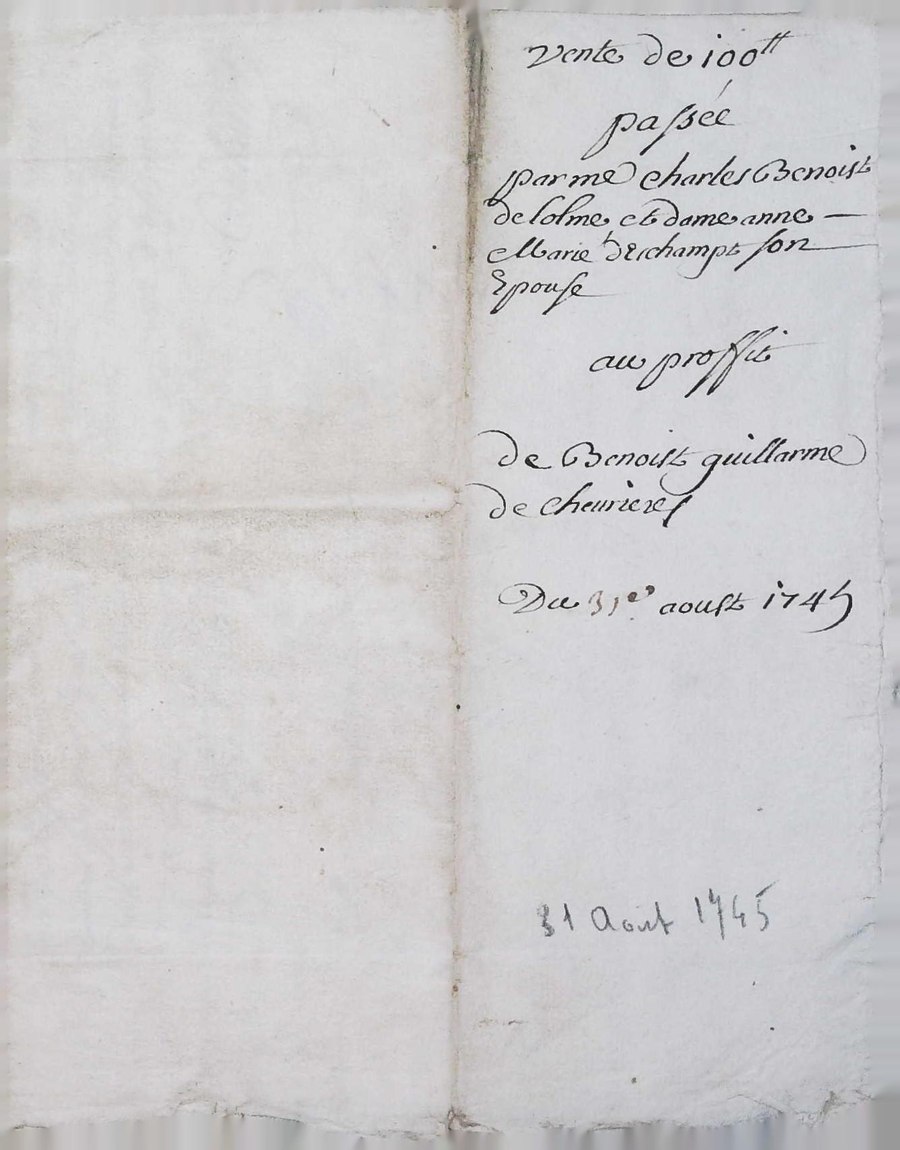 Vente de 100ᵗᵗ
passée
par me charles Benoist
delolme et dame anne —
Marie deschampt son
Epouse
au proffit
de Benoist guillarme
de cheurieres
Du 31ᵉ aoust 1745
31 Aout 1745